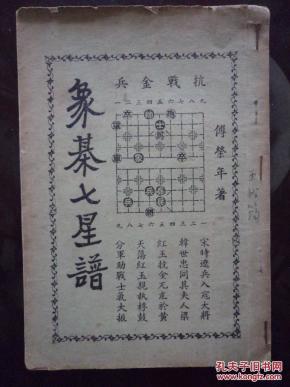 抗戰金兵
九八七六五四三二一
傅榮年著
象棊七星譜
一二三四五六七八九
宋時遼兵入寇大將
韓世忠同其夫人梁
紅玉抗金兀朮於黃
天蕩紅玉親執桴鼓
分軍助戰士氣大振
孔夫子旧书网